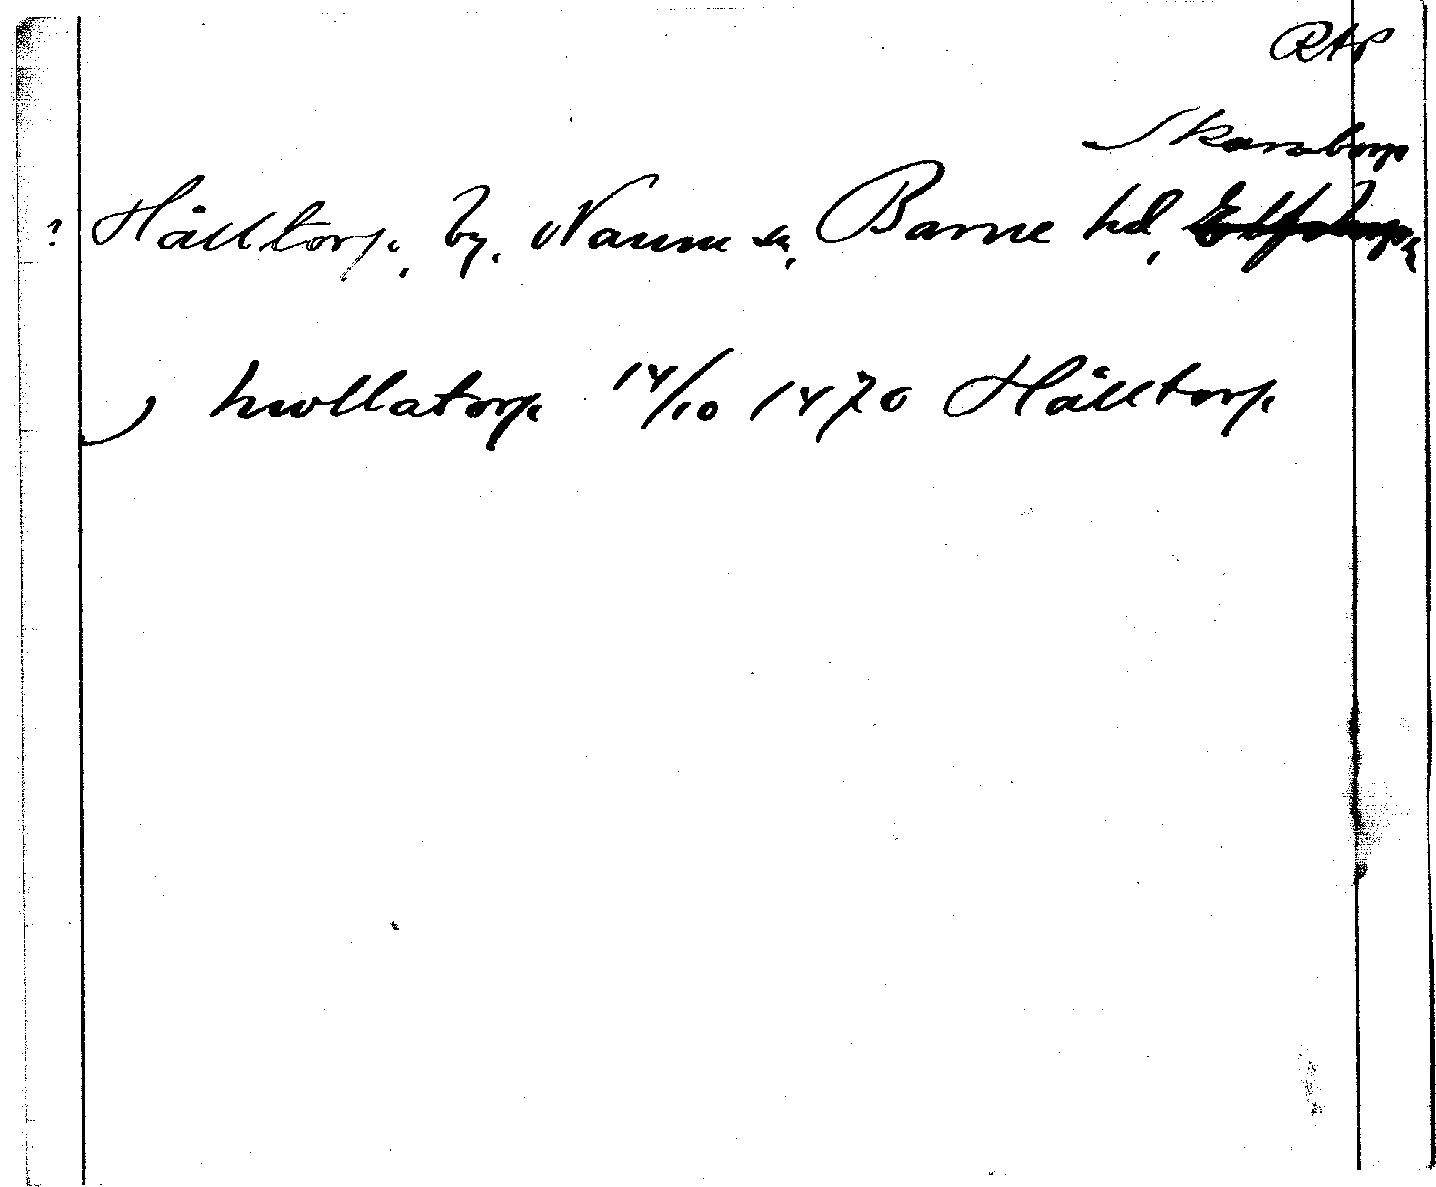 RAP
Skarab​org
? Hälltorp, by, Naum sn, Barne hd, Elfsborgs
) hwllatorp 14/10 1470 Hålltorp